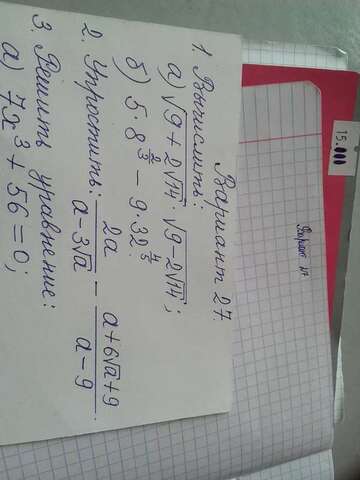 Вариант 27.
1. Вычислить:
а) √9+2√14 · √9-2√14;
б) 5·8^(2/3) - 9·32^(4/5).
2. Упростить: 2a/(a-3√a) - (a+6√a+9)/(a-9).
3. Решить уравнение:
а) 7x³+56=0;
15.